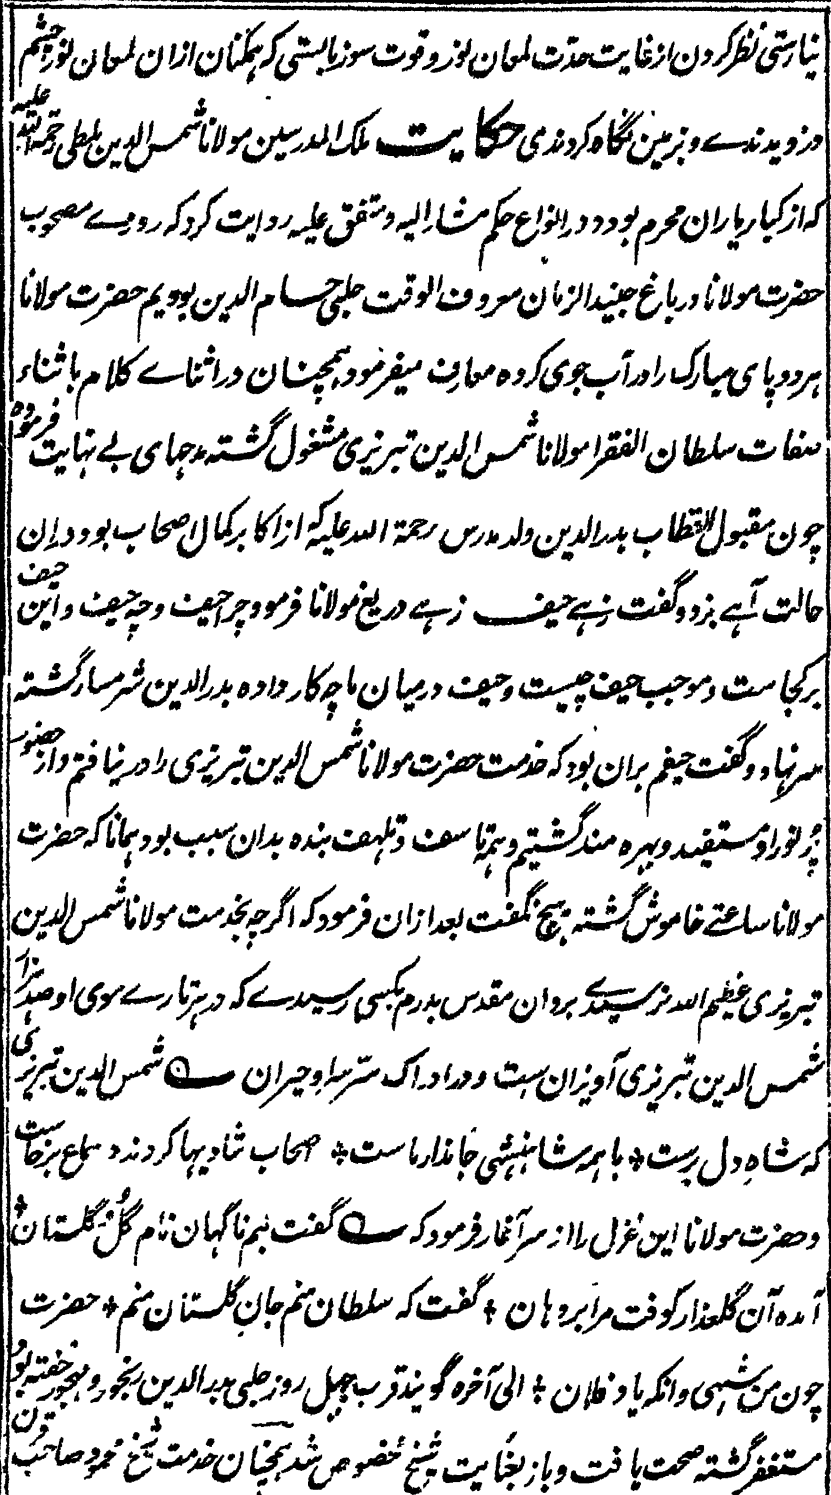 نیارستی نظر کردن از غایت حدّت لمعان نور و قوت سوز بایستی که همگنان ازان لمعان نور چشم
دزویدندے و بزمین نگاه کردندی حکایت ملک المدرسین مولانا شمس الدین ملطی رحمة الله علیه
که از کبار یاران محرم بود و در انواع حکم مشار الیه و متفق علیه روایت کرد که روزے مصحوب
حضرت مولانا در باغ جنید الزمان معروف الوقت چلبی حسام الدین بودیم حضرت مولانا
هر دو پای مبارک را در آب جوی کرده معارف میفرمود همچنان در اثناے کلام باثناء
صفات سلطان الفقرا مولانا شمس الدین تبریزی مشغول گشته مدحهای بے نهایت فرموده
چون مقبول الاقطاب بدر الدین ولد مدرس رحمة الله علیه که از اکابر کمال اصحاب بود دران
حالت آهے بزد و گفت زهے حیف زهے دریغ مولانا فرمود چرا حیف و چه حیف و این حیف
بر کجاست و موجب حیف چیست و حیف در میان ما چه کار دارد بدر الدین شرمسار گشته
سر نهاد و گفت حیفم بران بود که خدمت حضرت مولانا شمس الدین تبریزی را در نیافتم و از حضور
پُر نور او مستفید و بهره مند گشتیم و همه تاسف و تلهف بنده بدان سبب بود همانا که حضرت
مولانا ساعتے خاموش گشته هیچ نگفت بعد ازان فرمود که اگرچه بخدمت مولانا شمس الدین
تبریزی عظم الله نرسیدے بروان مقدس پدرم بکسی رسیدے که در هر تارے موی او صد هزار
شمس الدین تبریزی آویزان ست و در ادراک سرّ سر او حیران شمس الدین تبریزی
که شاهِ دل برست * با همه شاهنشهی جاندار ماست * صحاب شادیها کردند و سماع برخاست
و حضرت مولانا این غزل را از سر آغاز فرمود که گفت لبم ناگهان نام گُل و گلستان *
آمد آن گلعذار کوفت مرا بر دهان * گفت که سلطان منم جانِ گلستان منم * حضرت
چون من شهی وانگه یاد فلان * الی آخره گویند قرب چهل روز چلبی بدر الدین رنجور و مهجور خفته بود
مستغفر گشته صحت یافت و باز بعنایت شیخ مخصوص شد همچنان خدمت شیخ محمود صاحب قران